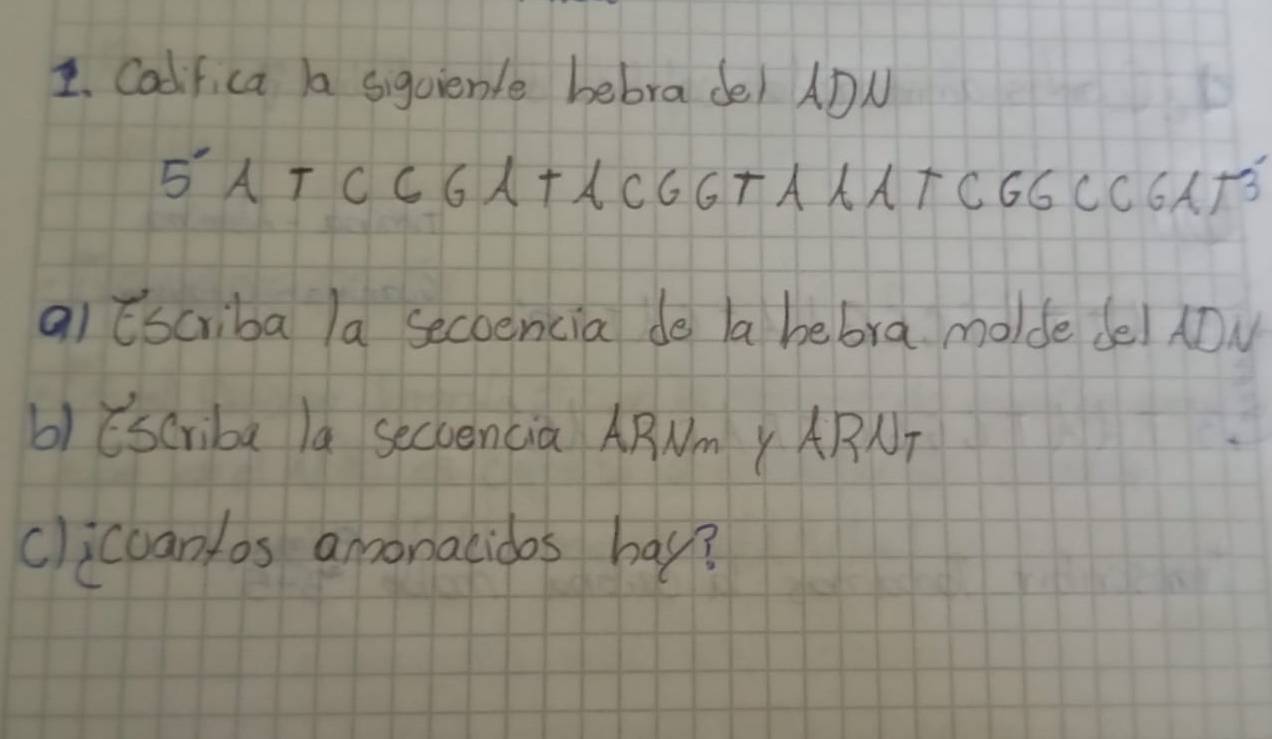 1. Codifica la siguiente hebra del ADN
5´ A T C C G A T A C G G T A A A T C G G C C G A T 3´
a) Escriba la secuencia de la hebra molde del ADN
b) Escriba la secuencia ARNm y ARNT
c) ¿cuantos amonacidos hay?